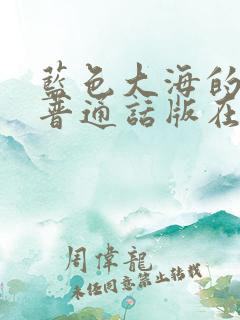 藍色大海的
普通話版在
周偉龍
未經同意禁止轉載